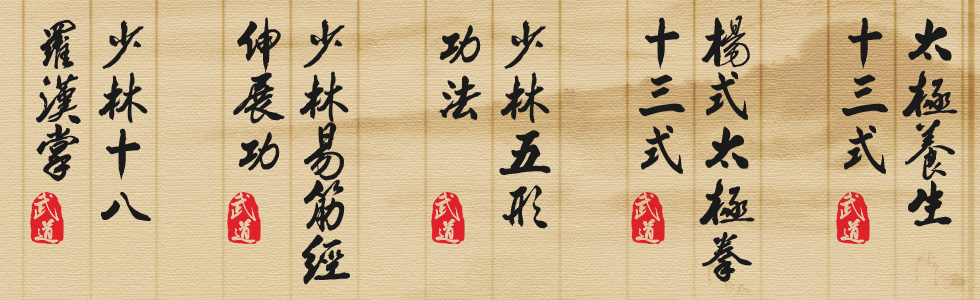 太極養生
十三式
武道
楊式太極拳
十三式
武道
少林五形
功法
武道
少林易筋經
伸展功
武道
少林十八
羅漢掌
武道